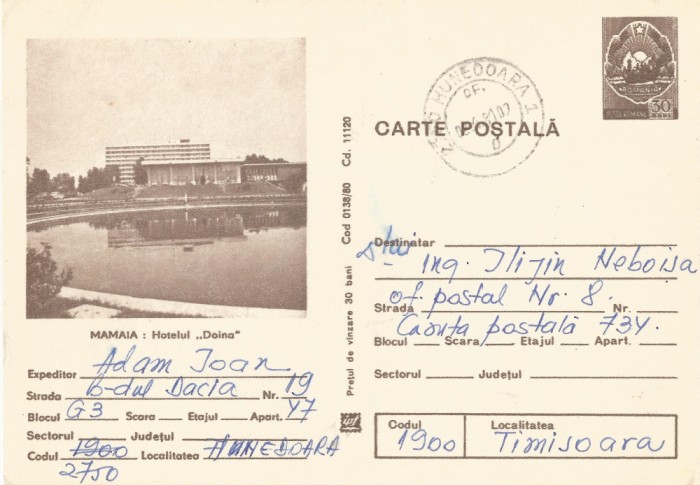 MAMAIA : Hotelul „Doina"
Expeditor Adam Ioan
Strada B-dul Dacia Nr. 19
Blocul G3 Scara Etajul Apart. 47
Sectorul Județul
Codul 1900 Localitatea HUNEDOARA
2750
Prețul de vînzare 30 bani Cod 0138/80 Cd. 11120
CARTE POȘTALĂ
HUNEDOARA 1
ROMANIA
POSTA ROMANA 30 BANI
Destinatar Dlui Ing. Ilijin Neboisa
of. postal Nr. 8.
Strada Nr.
Casuta postală 734.
Blocul Scara Etajul Apart.
Sectorul Județul
Codul Localitatea
1900 Timisoara